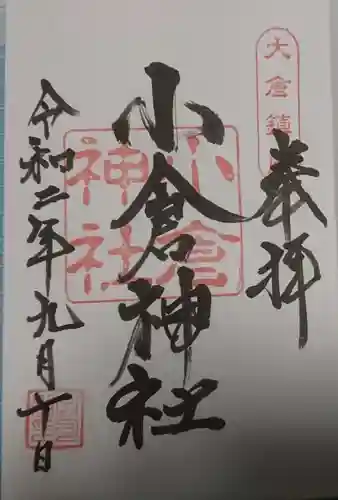 大倉鎮
奉拝
小倉神社
小倉
神社
令和二年九月十日